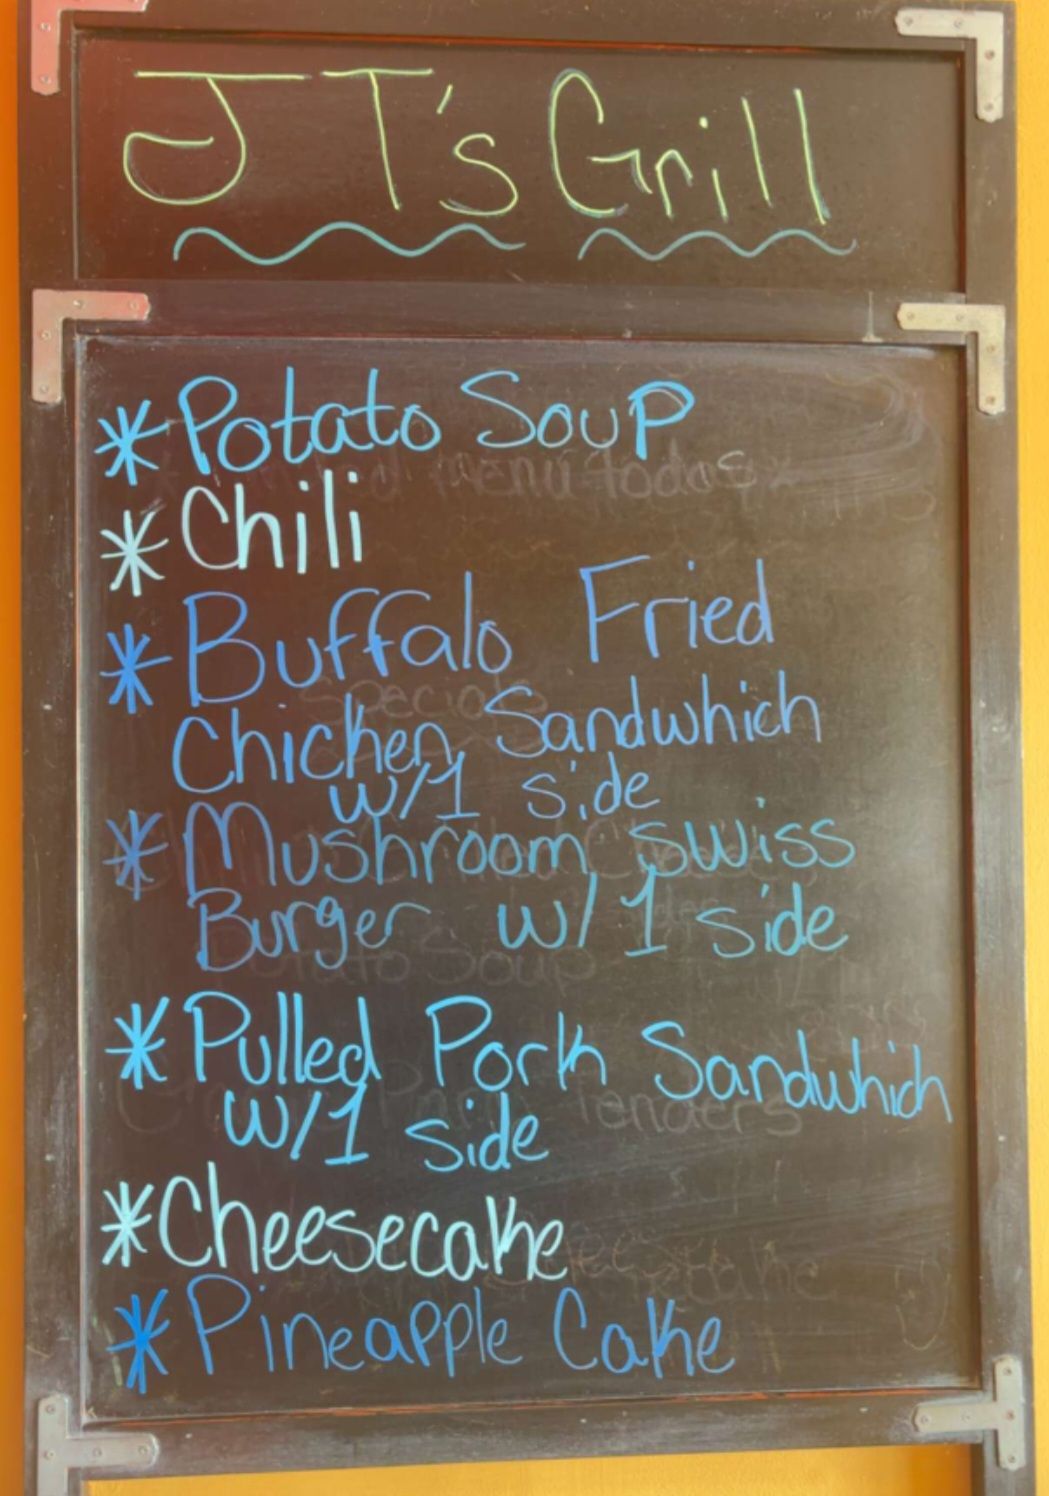 JT's Grill
*Potato Soup
menu today
*Chili
*Buffalo Fried
Specials
Chicken Sandwhich
w/1 side
*Mushroom swiss
Burger w/1 side
Potato Soup
*Pulled Pork Sandwhich
Tenders
w/1 side
*Cheesecake
*Pineapple Cake